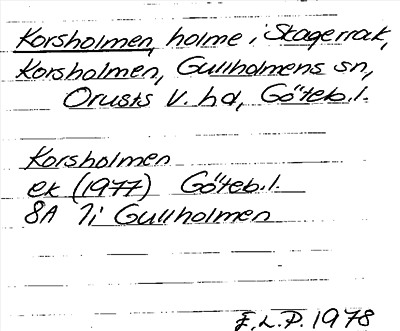 Korsholmen, holme i Skagerrak,
Korsholmen, Gullholmens sn,
Orusts V. hd, Göteb.l.
Korsholmen
ek (1977) Göteb.l.
8A 7i Gullholmen
E.L.P. 1978